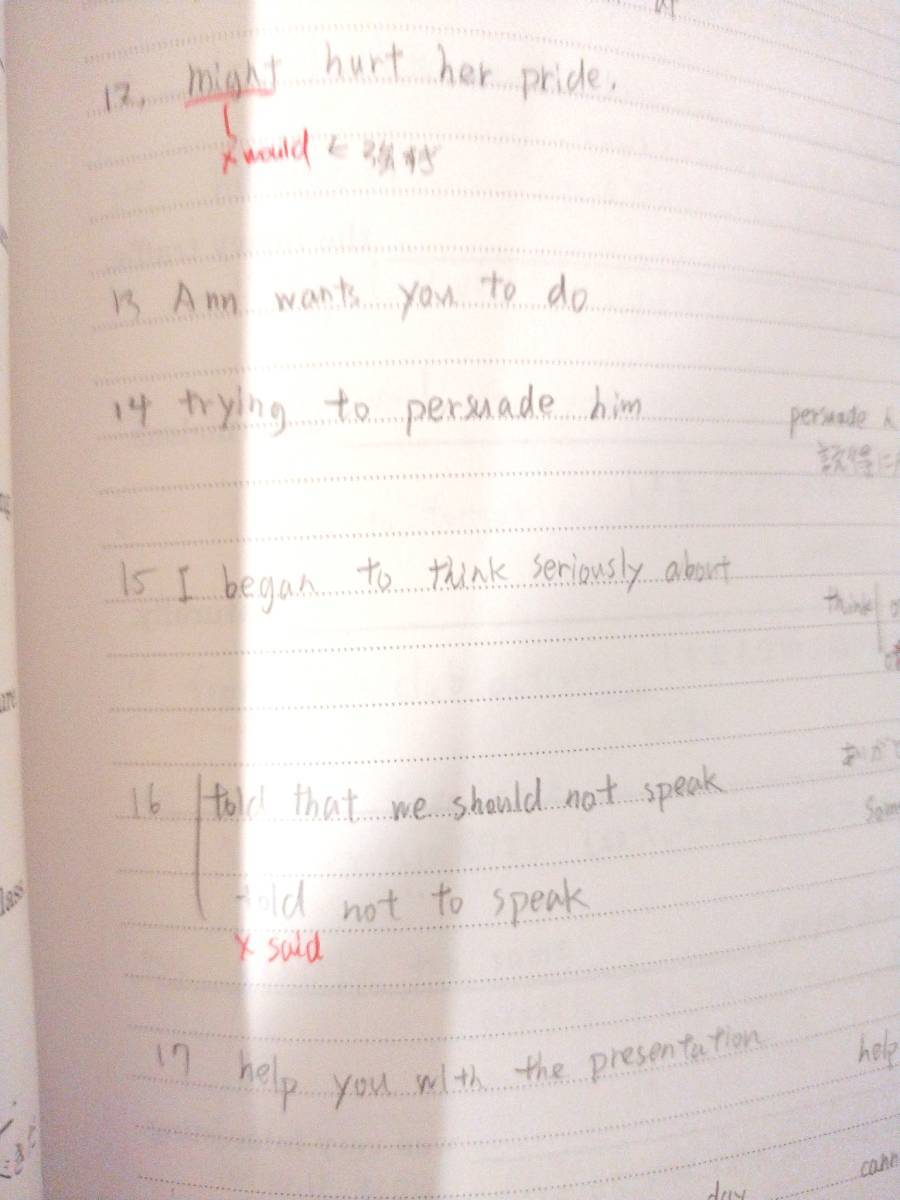 12. might hurt her pride.
× would ← 強すぎ
13 Ann wants you to do
14 trying to persuade him
persuade 人
説得に
15 I began to think seriously about
think
16 told that we should not speak
told not to speak
× said
17 help you with the presentation
help
day